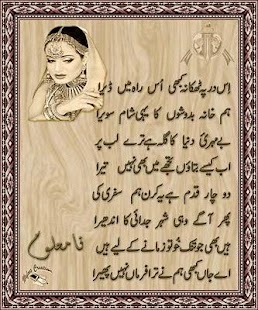 اِس در پہ ٹھکانہ کبھی اُس راہ میں ڈیرا
ہم خانہ بدوشوں کا یہی شام سویرا
بے مہریٔ دنیا کا گلہ ہے ترے لب پر
اب کیسے بتاؤں تجھے میں بھی نہیں تیرا
دو چار قدم ہے یہ کرن ہم سفری کی
پھر آئے گا وہی شہر جدائی کا اندھیرا
ہیں بھی جو خنک خُو تو زمانے کے لیے ہیں
اے جاں کبھی ہم نے ترا فرماں نہیں پھیرا
نامعلوم